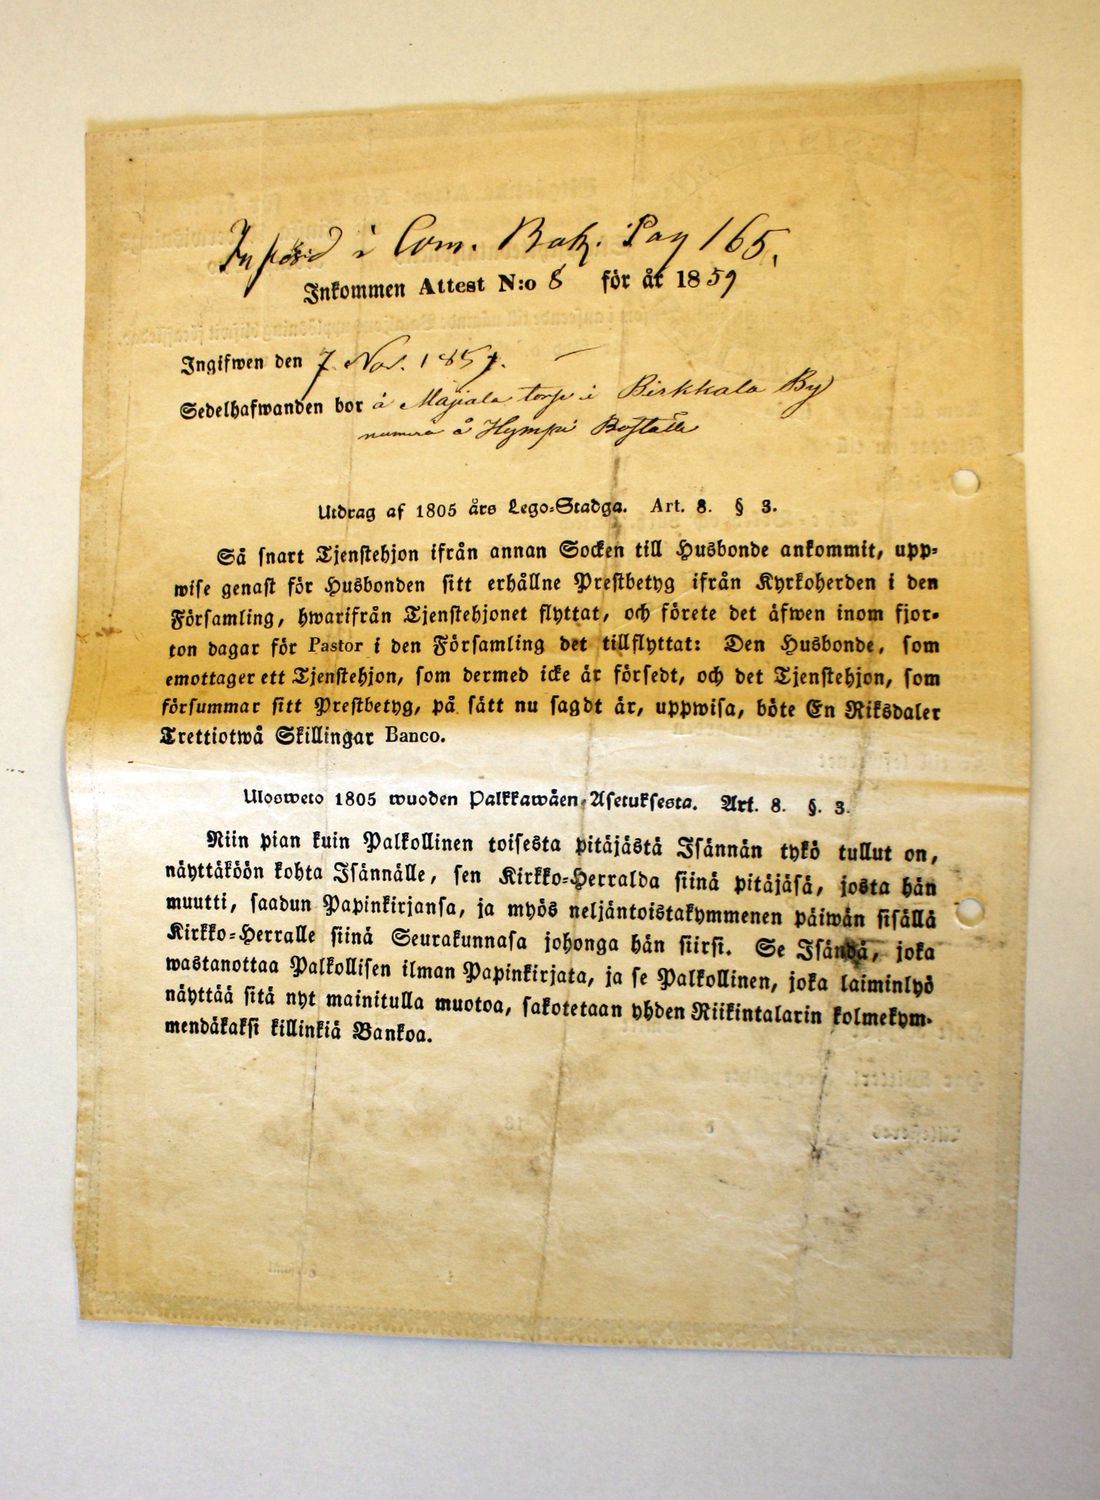 Införd i Com. Bok. Pag 165.
Inkommen Attest N:o 8 för år 1859
Ingifwen den 7 Nov. 1857.
Sedelhafwanden bor å Majala torp i Birkkala By
numera å Hympi Boställe
Utdrag af 1805 års Lego-Stadga. Art. 8. § 3.
Så snart Tjenstehjon ifrån annan Socken till Husbonde ankommit, upp-
wise genast för Husbonden sitt erhållne Prestbetyg ifrån Kyrkoherden i den
Församling, hwarifrån Tjenstehjonet flyttat, och förete det äfwen inom fjor-
ton dagar för Pastor i den Församling det tillflyttat: Den Husbonde, som
emottager ett Tjenstehjon, som dermed icke är försedt, och det Tjenstehjon, som
försummar sitt Prestbetyg, på sätt nu sagdt är, uppwisa, böte En Riksdaler
Trettiotwå Skillingar Banco.
Ulosweto 1805 wuoden Palkkawäen-Asetuksesta. Art. 8. §. 3.
Niin pian kuin Palkollinen toisesta pitäjästä Isännän tykö tullut on,
näyttäköön kohta Isännälle, sen Kirkko-Herralda siinä pitäjäsä, josta hän
muutti, saadun Papinkirjansa, ja myös neljäntoistakymmenen päiwän sisällä
Kirkko-Herralle siinä Seurakunnasa johonga hän siirsi. Se Isändä, joka
wastanottaa Palkollisen ilman Papinkirjata, ja se Palkollinen, joka laiminlyö
näyttää sitä nyt mainitulla muotoa, sakotetaan yhden Riikintalarin kolmekym-
mendäkaksi killinkiä Bankoa.